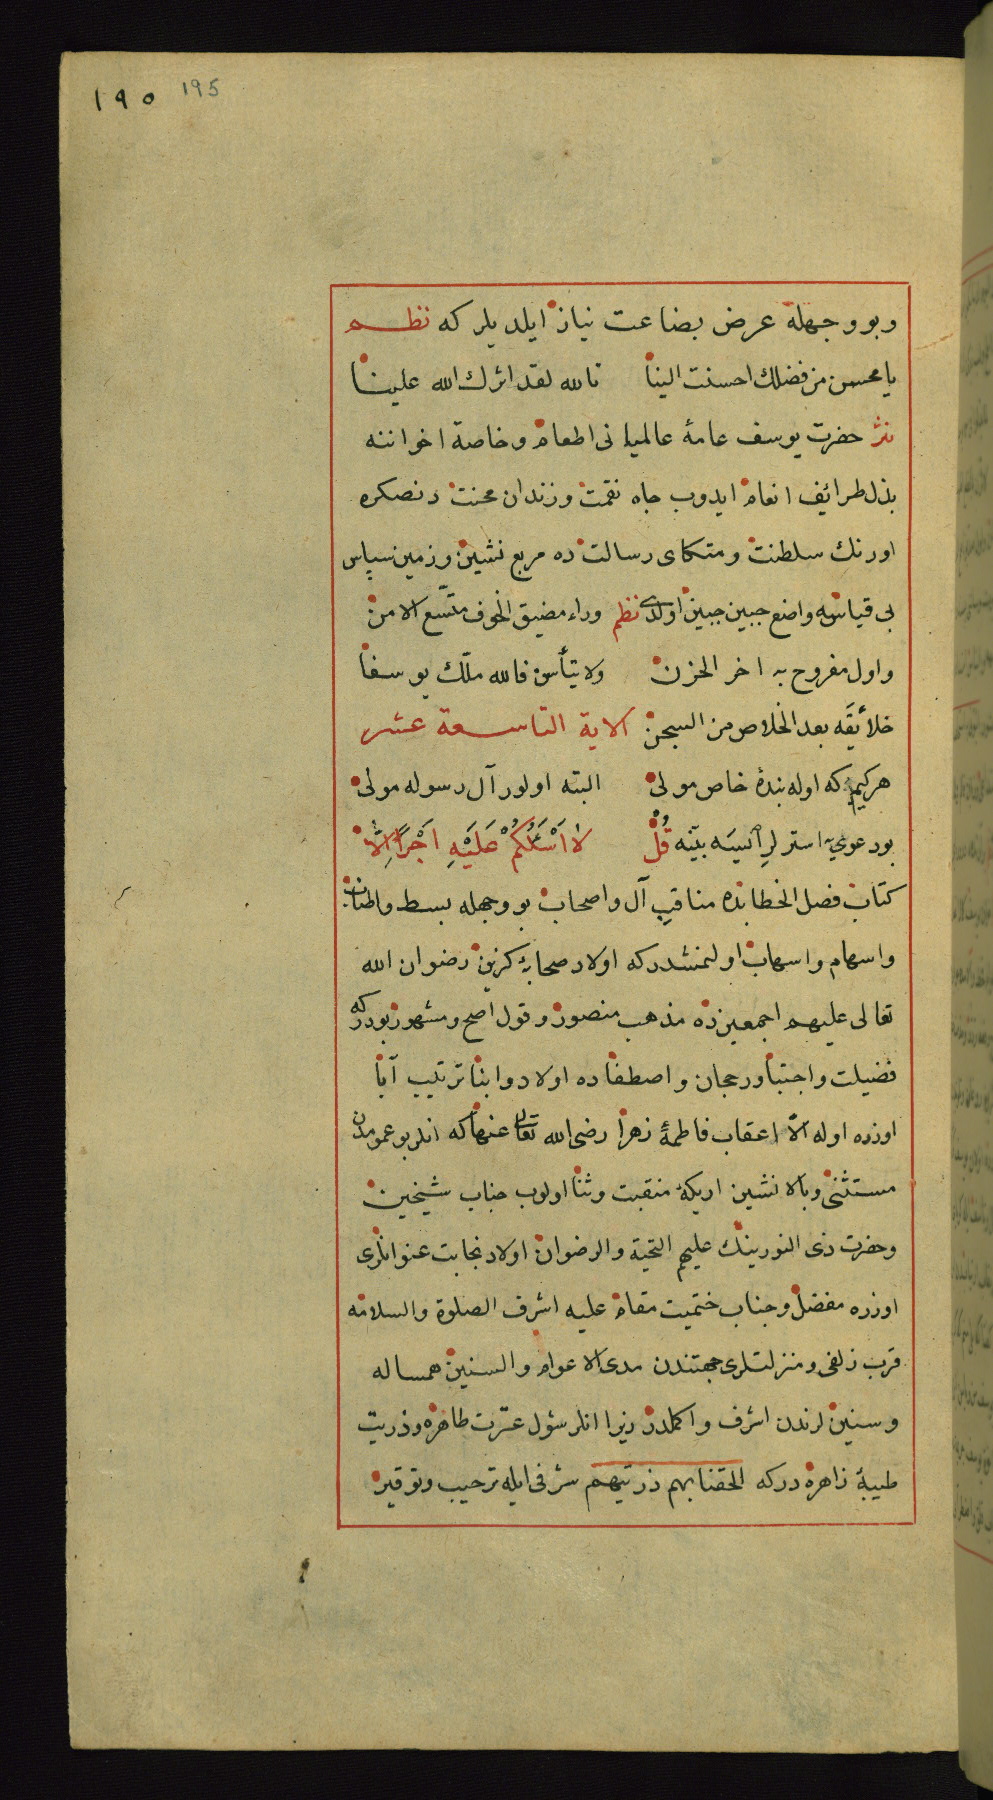 ١٩٥ 195
وبو وجهله عرض بضاعت نياز ايلديلر كه نظم
يا محسن من فضلك احسنت الينا تالله لقد اثرك الله علينا
نثر حضرت يوسف عامۀ عالميانى اطعام وخاصۀ اخواننه
بذل طرائيف انعام ايدوب چاه نقمت وزندان محنتدنصكره
اورنك سلطنت ومتكاى رسالتده مربع نشين وزمين سپاس
بى قياسه واضع جبين جبين اولدى نظم وراء مضيق الخوف متّسع الامن
واول مفروح به اخر الحزن ولا يتأسن فالله ملّك يوسفا
خلائيقه بعد الخلاص من السجن الاية التاسعة عشر
هر كيم كه اوله بندۀ خاص مولى البته اولور آل رسوله مولى
بو دعوىيه استرلر ايسه بيّنه قُلْ لا اَسْئَلُكُمْ عَلَيْهِ اَجْرًا اِلاَّ
كتاب فصل الخطابده مناقب آل واصحاب بو وجهله بسط واطناب
واسهام واسهاب اولنمشدركه اولاد صحابۀ كزين رضوان الله
تعالى عليهم اجمعينده مذهب منصور وقول اصح ومشهور بودركه
فضيلت واجتبا ورجحان واصطفاده اولاد وابنا ترتيب آبا
اوزره اوله الاّ اعقاب فاطمۀ زهرا رضى الله تعالى عنها كه انلر بو عمومدن
مستثنى وبالا نشين اريكۀ منقبت وثنا اولوب جناب شيخين
وحضرت ذى النورينك عليهم التحية والرضوان اولاد نجابت عنوانلرى
اوزره مفضل وجناب ختميت مقام عليه اشرف الصلوة والسلامه
قرب زلفى ومنزلتلرى جهتندن مدى الاعوام والسنين همساله
وسنينلرندن اشرف واكملدر زيرا انلر سؤل عترت طاهره وذريت
طيبۀ زاهره دركه الحقنا بهم ذريتهم شرفى ايله ترحيب وتوقير